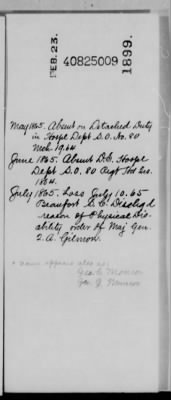 FEB. 23.
40825009
1899.
May 1865. Absent on Detached Duty
in Hospl Dept S.O. No. 80
Mch. 1964
June 1865. Absent D.S. Hospl
Dept S.O. 80
1864.
July 1865. Loss July 10. 65
Beaufort S.C. Dischgd
reason of Physical Dis-
ability order of Maj Gen.
Q. A. Gilmore.
name appears also as:
Geo.
Geo. J.